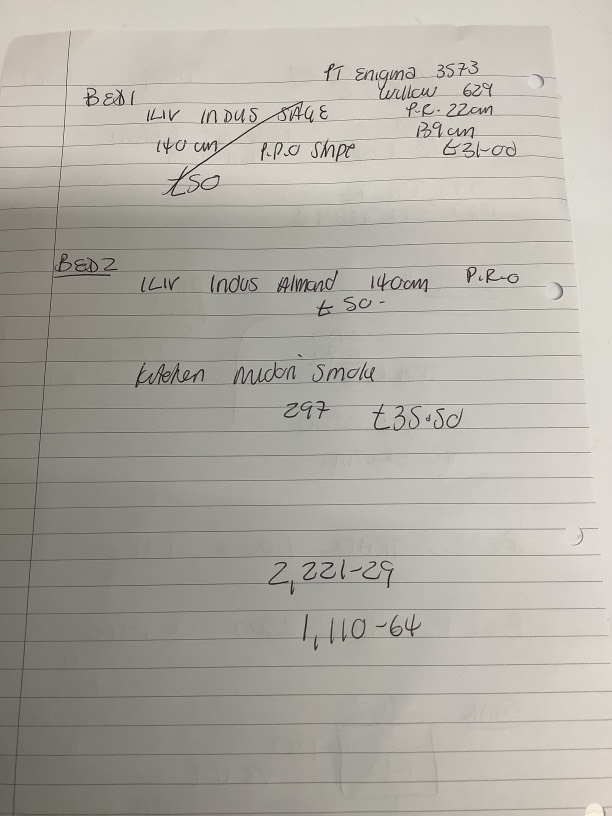 PT Enigma 3573
BED1 Willow 629
ILIV INDUS SAGE P.R. 22cm
140 cm P.P.O Stripe 139cm
£50 £31-00
BED2
ILIV Indus Almond 140cm P.R-O
£ 50-
Kitchen Midori Smoke
297 £35.50
2,221-29
1,110-64